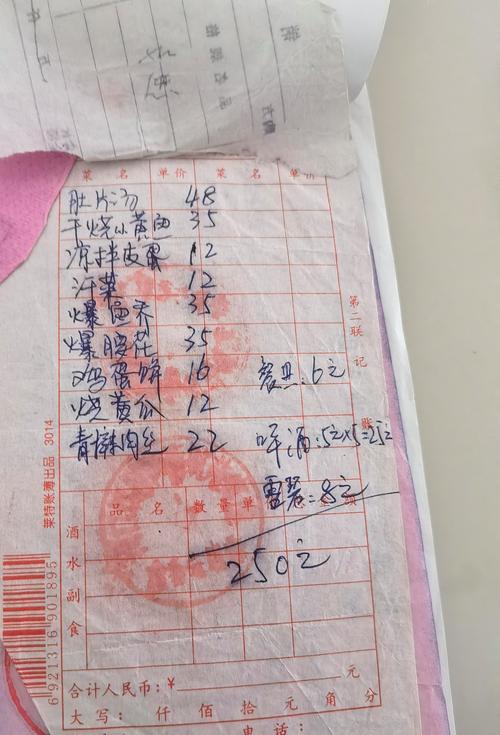 菜 名 单价 菜 名 单价
肚片汤 48
干烧小黄鱼 35
凉拌皮蛋 12
汗菜 12
爆鱼禾 35
爆腰花 35
鸡蛋饼 16
餐具:6元
烧黄瓜 12
青椒肉丝 22
啤酒:5元×5=25元
雪碧:8元
250元
第二联 记账
莱特账簿出品 3014
6921316901895
品 名 数量 单
酒水副食
合计人民币:¥ 元
大写: 仟 佰 拾 元 角 分
电话: